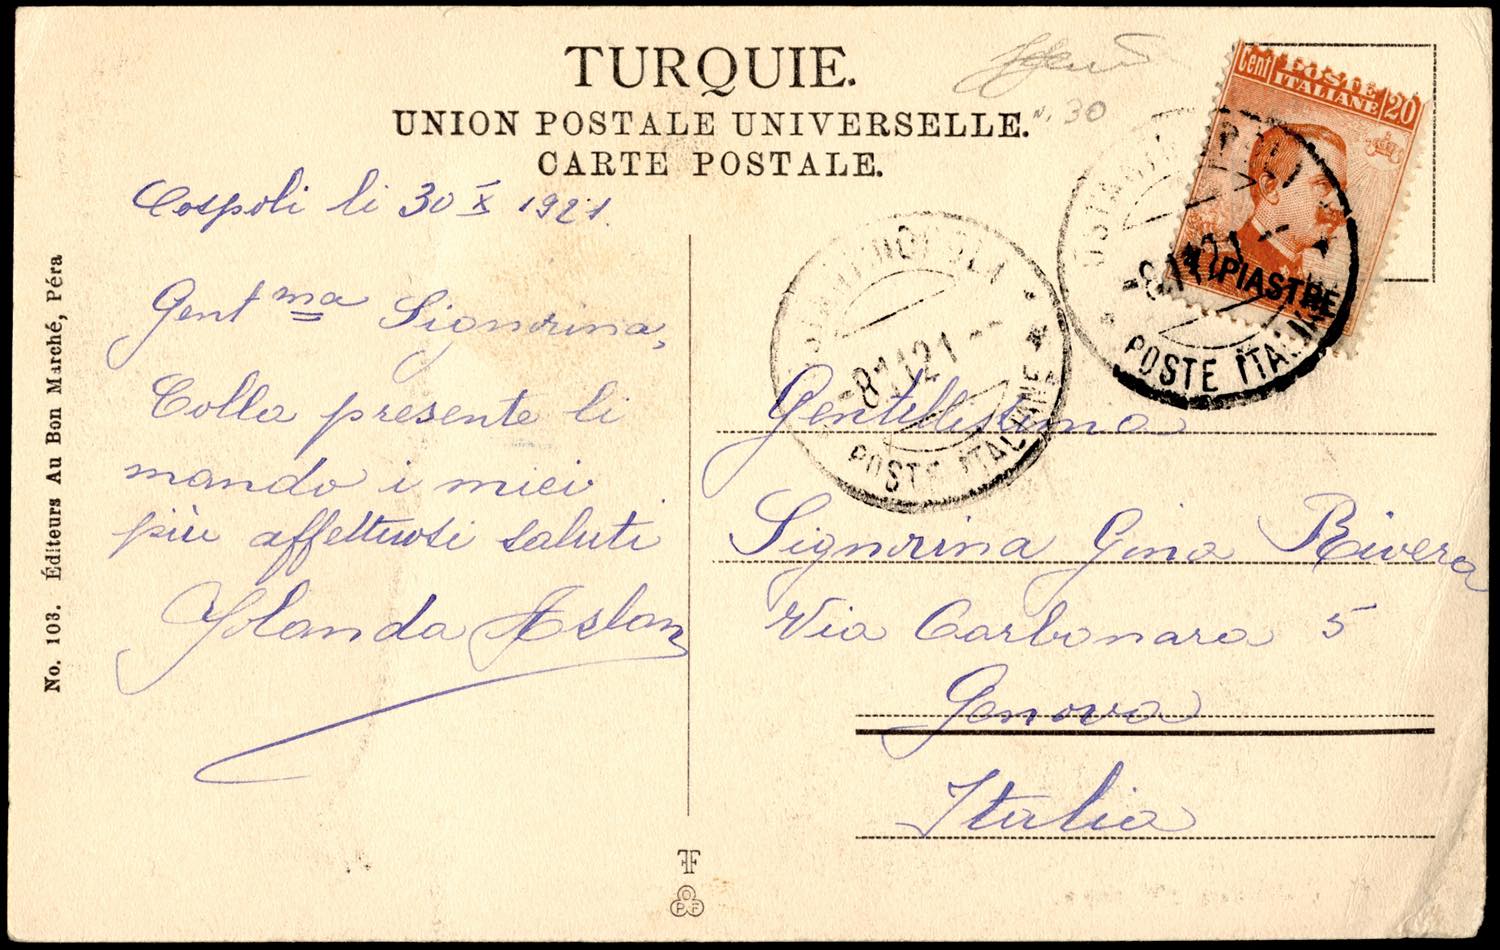 TURQUIE.
UNION POSTALE UNIVERSELLE.
CARTE POSTALE.
N. 30
Cospoli li 30 X 1921.
Gent ma Signorina,
Colla presente li
mando i miei
più affettuosi saluti
Yolanda Aslan
No. 103. Éditeurs Au Bon Marché, Péra
Cent POSTE ITALIANE 20
1 PIASTRE
-8.11.21--
POSTE ITALIANE
-8.11.21--
POSTE ITALIANE
Gentillissima
Signorina Gina Rivera
Via Carbonara 5
Genova
Italia